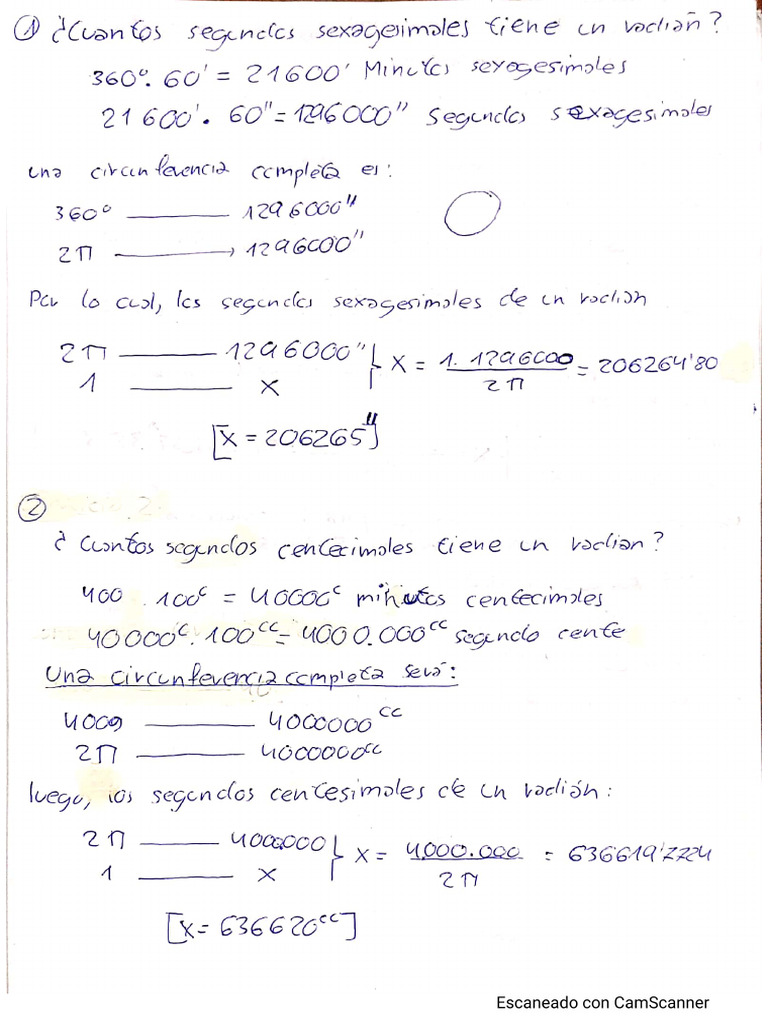 ① ¿Cuantos segundos sexagesimales tiene un radian?
360º. 60' = 21600' Minutos sexagesimales
21600' . 60" = 1296000" segundos sexagesimales
una circunferencia completa es:
360º ——— 1296000"
2π ———→ 1296000"
Por lo cual, los segundos sexagesimales de un radian
2π ——— 1296000" } x = 1. 1296000 / 2π = 206264'80
1 ——— x
[x = 206265"]
②
¿Cuantos segundos centecimales tiene un radian?
400 . 100ᶜ = 40000ᶜ minutos centecimales
40000ᶜ. 100ᶜᶜ = 4000.000ᶜᶜ segundo cente
Una circunferencia completa será:
400g ——— 4000000ᶜᶜ
2π ——— 4000000ᶜᶜ
luego, los segundos centesimales de un radián:
2π ——— 4000.000 } x = 4000.000 / 2π = 636619'7724
1 ——— x
[x = 636620ᶜᶜ]
Escaneado con CamScanner